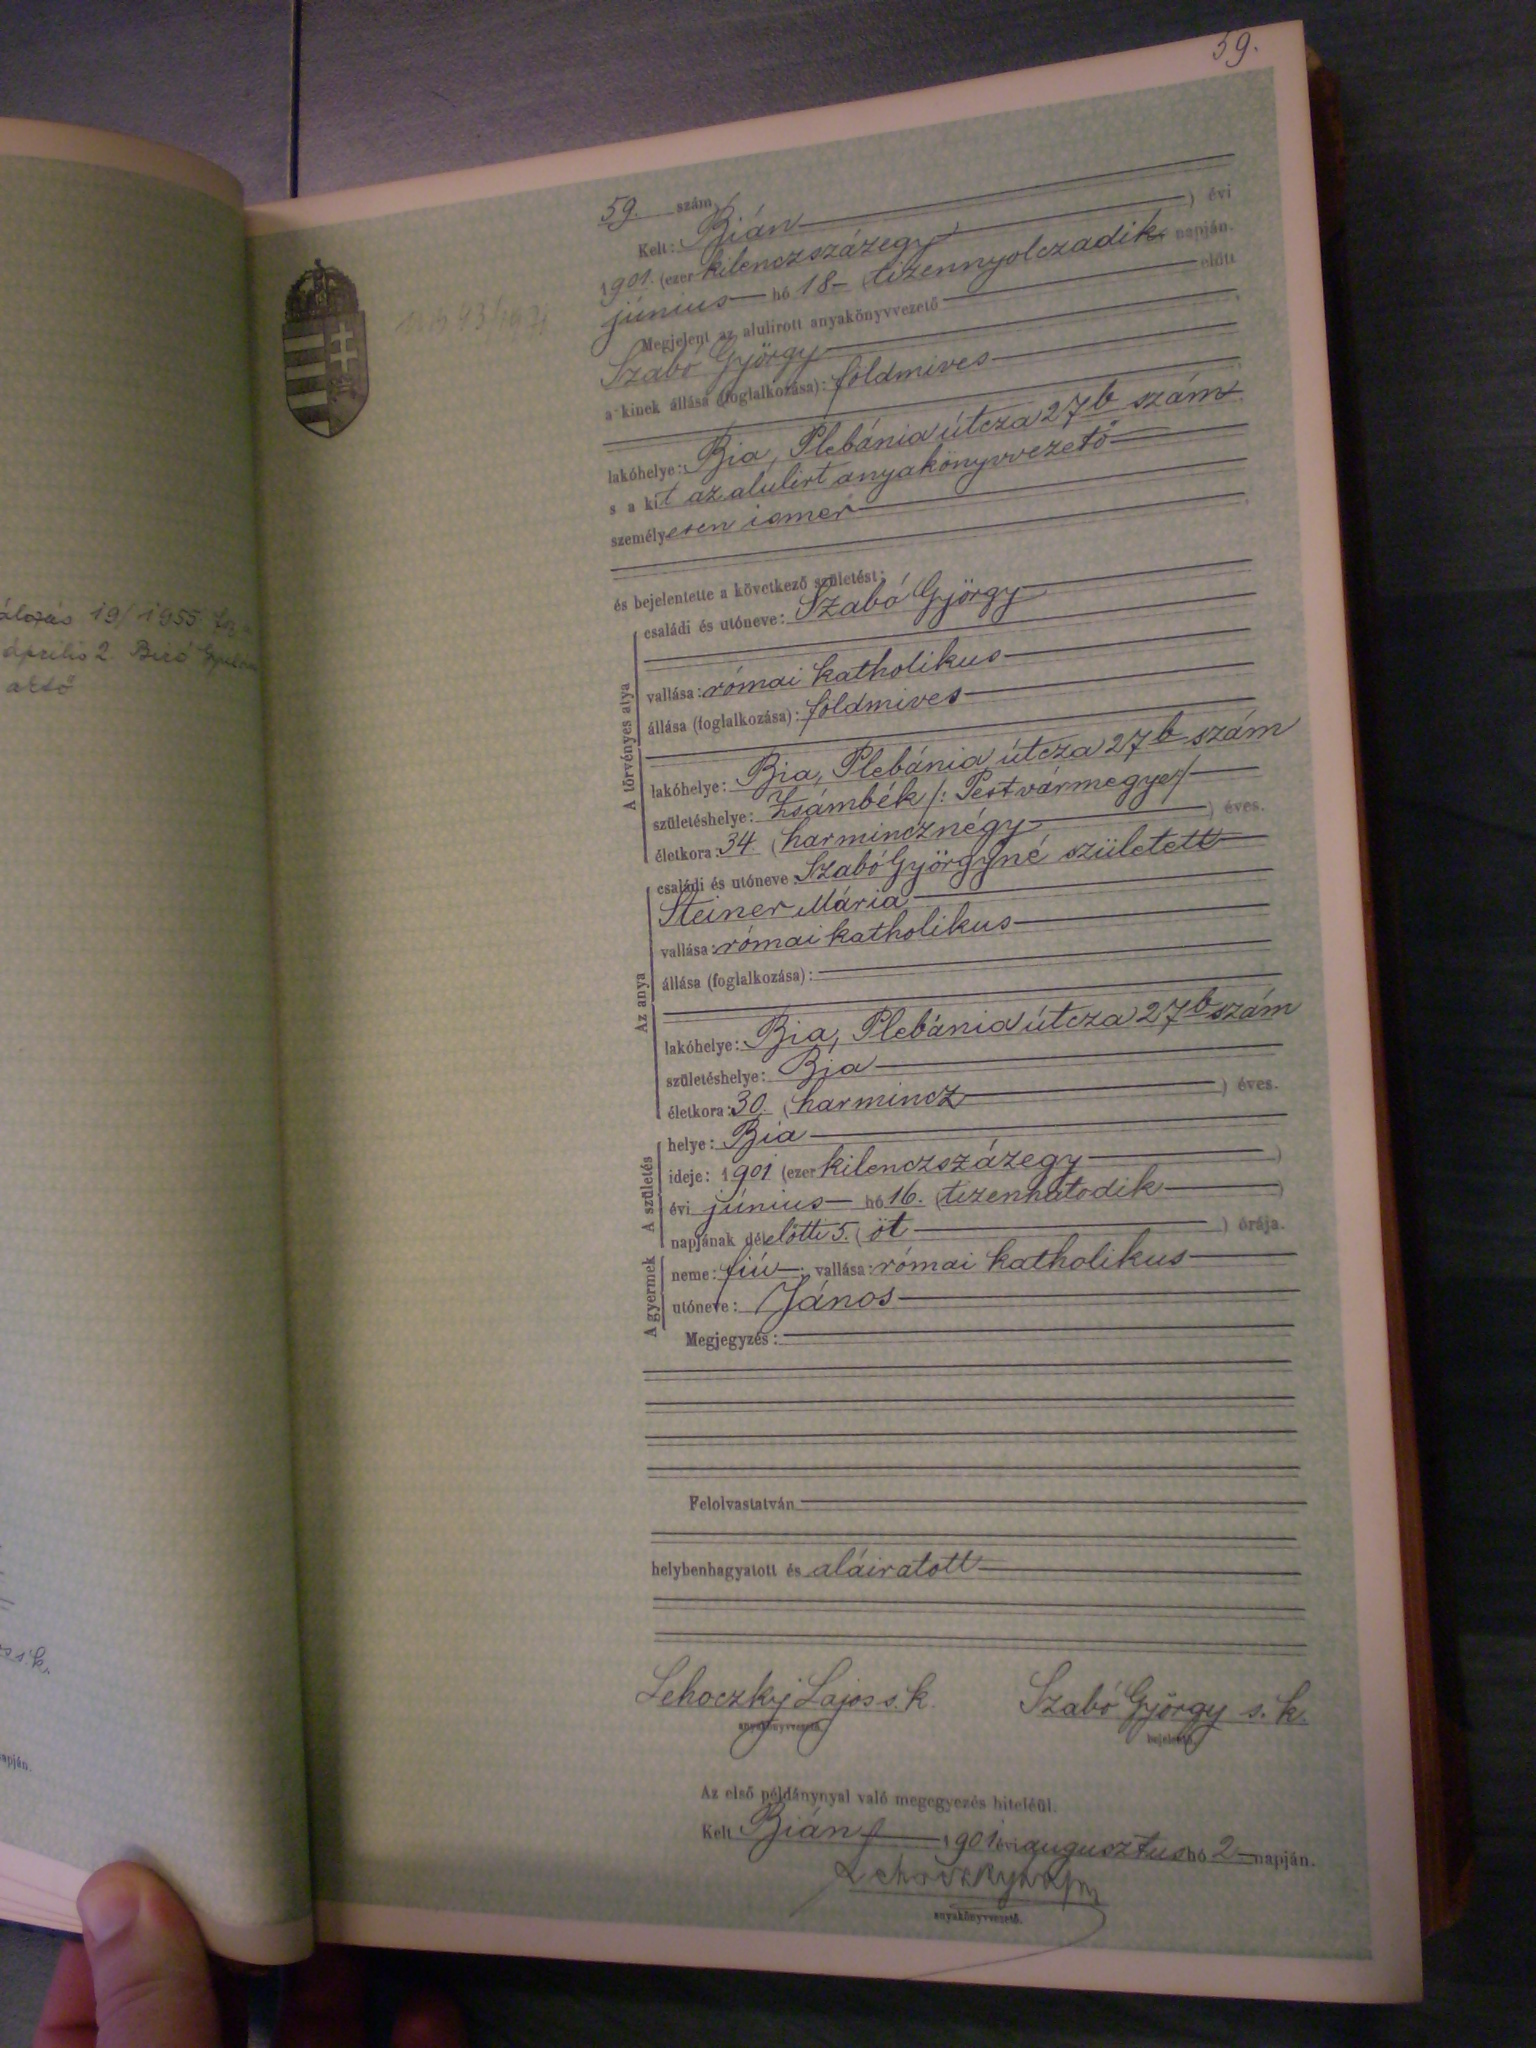 59.
59. szám
Kelt: Bián ) évi
1901. (ezer kilenczszázegy
június hó 18 (tizennyolczadik napján.
Megjelent az alulirott anyakönyvvezető előtt
Szabó György
a kinek állása (foglalkozása): földmíves
lakóhelye: Bia, Plebánia útcza 27b szám
s a kit az alulirt anyakönyvvezető
személyesen ismer
és bejelentette a következő születést:
A törvényes atya
családi és utóneve: Szabó György
vallása: római katholikus
állása (foglalkozása): földmíves
lakóhelye: Bia, Plebánia útcza 27b szám
születéshelye: Zsámbék /: Pestvármegye/
életkora: 34. (harmincznégy ) éves.
Az anya
családi és utóneve: Szabó Györgyné született
Steiner Mária
vallása: római katholikus
állása (foglalkozása):
lakóhelye: Bia, Plebánia útcza 27b szám
születéshelye: Bia
életkora: 30. (harmincz ) éves.
A születés
helye: Bia
ideje: 1901 (ezer kilenczszázegy )
évi június hó 16. (tizenhatodik )
napjának délelőtti 5. (öt ) órája.
A gyermek
neme: fiú vallása: római katholikus
utóneve: János
Megjegyzés:
Felolvastatván
helybenhagyatott és aláiratott
Lehoczky Lajos s. k. Szabó György s. k.
anyakönyvvezető. bejelentő.
Az első példánynyal való megegyezés hiteléül.
Kelt Bián 1901 évi augusztus hó 2 napján.
Lehoczky Lajos
anyakönyvvezető.
19/1955
április 2. Biró
s. k.
napján.